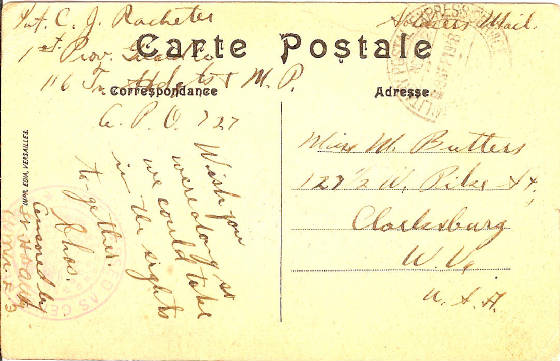 Pvt. C. J. Racheter
Soldiers Mail.
1st Prov. Guard Co
116 Tn. Hdqts & M. P.
A. P. O. 727
Carte Postale
Correspondance
Adresse
Miss M. Butters
127½ W. Pike St.
Clarksburg
W. Va
U. S. A.
Wish you
were along so
we could take
in the sights
together.
Chas.
Censored by
IMPR. EDIA, VERSAILLES.